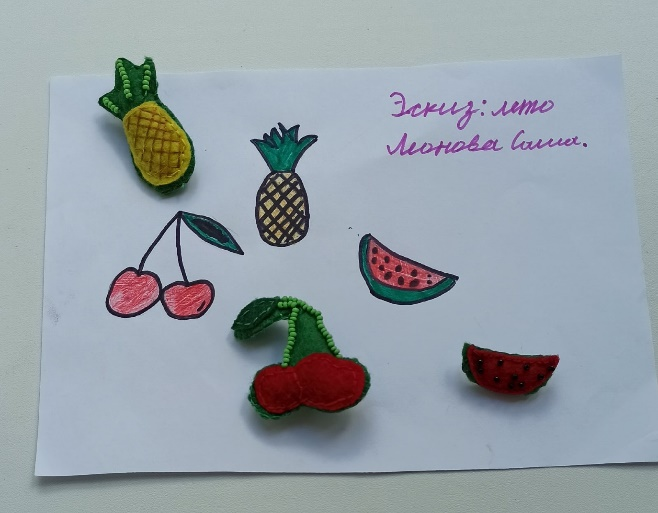 Эскиз: лето
Леонова Саша.